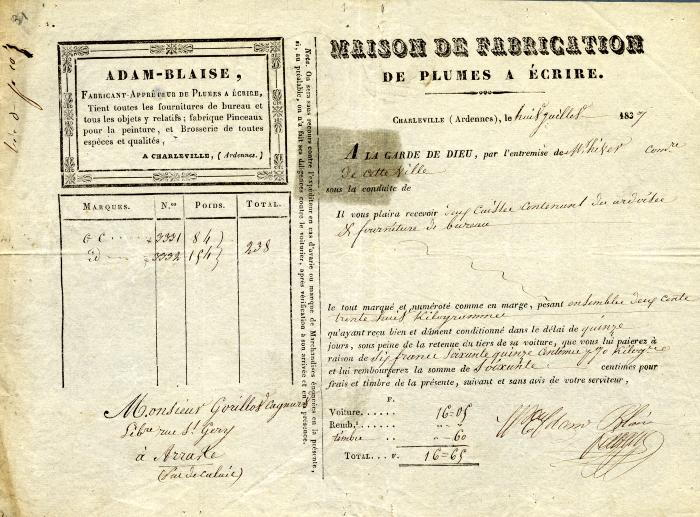 ADAM-BLAISE,
FABRICANT-APPRÊTEUR DE PLUMES A ÉCRIRE,
Tient toutes les fournitures de bureau et
tous les objets y relatifs; fabrique Pinceaux
pour la peinture, et Brosserie de toutes
espèces et qualités,
A CHARLEVILLE, (Ardennes.)
MARQUES. N.os POIDS. TOTAL.
3331 84
3332 154 238
Monsieur
Libre rue St Gery
à Arras
(Pas de calais)
Nota. On sera sans recours contre l'expéditeur en cas d'avarie ou manque de Marchandises énoncées en la présente,
si, au préalable, on n'a fait ses diligences contre le voiturier, après vérification à son arrivée et en sa présence.
MAISON DE FABRICATION
DE PLUMES A ÉCRIRE.
CHARLEVILLE (Ardennes), le huit juillet 1837
A LA GARDE DE DIEU, par l'entremise de
de cette Ville
sous la conduite de
Il vous plaira recevoir deux caisses contenant des ardoises
& fourniture de bureau
le tout marqué et numéroté comme en marge, pesant ensemble deux cents
trente huit Kilogrammes
qu'ayant reçu bien et dûment conditionné dans le délai de quinze
jours, sous peine de la retenue du tiers de sa voiture, que vous lui paierez à
raison de six francs soixante quinze centimes
et lui rembourserez la somme de soixante centimes pour
frais et timbre de la présente, suivant et sans avis de votre serviteur,
F.
Voiture..... 16=05
Remb.t
timbre 60
TOTAL... F. 16=65
Adam Blaise